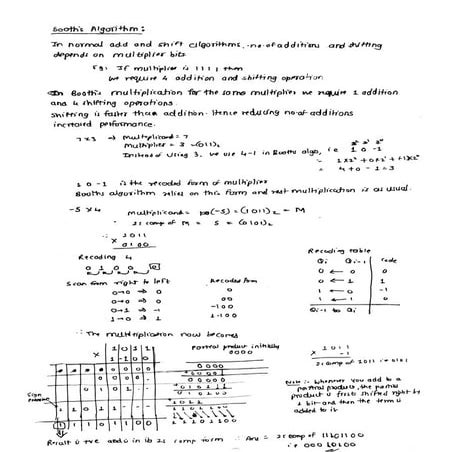 Booth's Algorithm:
In normal add and shift algorithms, no. of additions and shifting
depends on multiplier bits
Eg: If multiplier is 1111, then
we require 4 addition and shifting operation
In Booth's multiplication for the same multiplier we require 1 addition
and 4 shifting operations.
Shifting is faster than addition. Hence reducing no of additions
increased performance.
7×3 → Multiplicand = 7
Multiplier = 3 → (011)₂
Instead of using 3, we use 4-1 in Booths algo, i.e 1 0 -1
= 4+0-1 = 3
1 0 -1 is the recoded form of multiplier
Booths algorithm relies on this form and rest multiplication is as usual.
-5 × 4 Multiplicand = (-5) = (1011)₂ → M
2's comp of M = 5 = (0101)₂
∴ 1011
× 0100
Recoding 4
0 1 0 0 0
Scan from right to left Recoded form
0→0 → 0 0
0→0 → 0 00
0→1 → -1 -100
1→0 → 1 1-100
Recoding table
Qi Qi-1 Code
0 ← 0 0
0 ← 1 1
1 ← 0 -1
1 ← 1 0
Qi-1 to Qi
∴ The multiplication now becomes
1 0 1 1
× 1 -1 0 0
Partial product initially
0000
1011
× -1
2's comp of 1011 is 0101
Note:- Whenever you add to a
partial product, the partial
product is first shifted right by
1 bit and then the term is
added to it
Sign
Result is -ve and is in 2's comp form ∴ Ans = 2's comp of 11101100
i.e 00010100